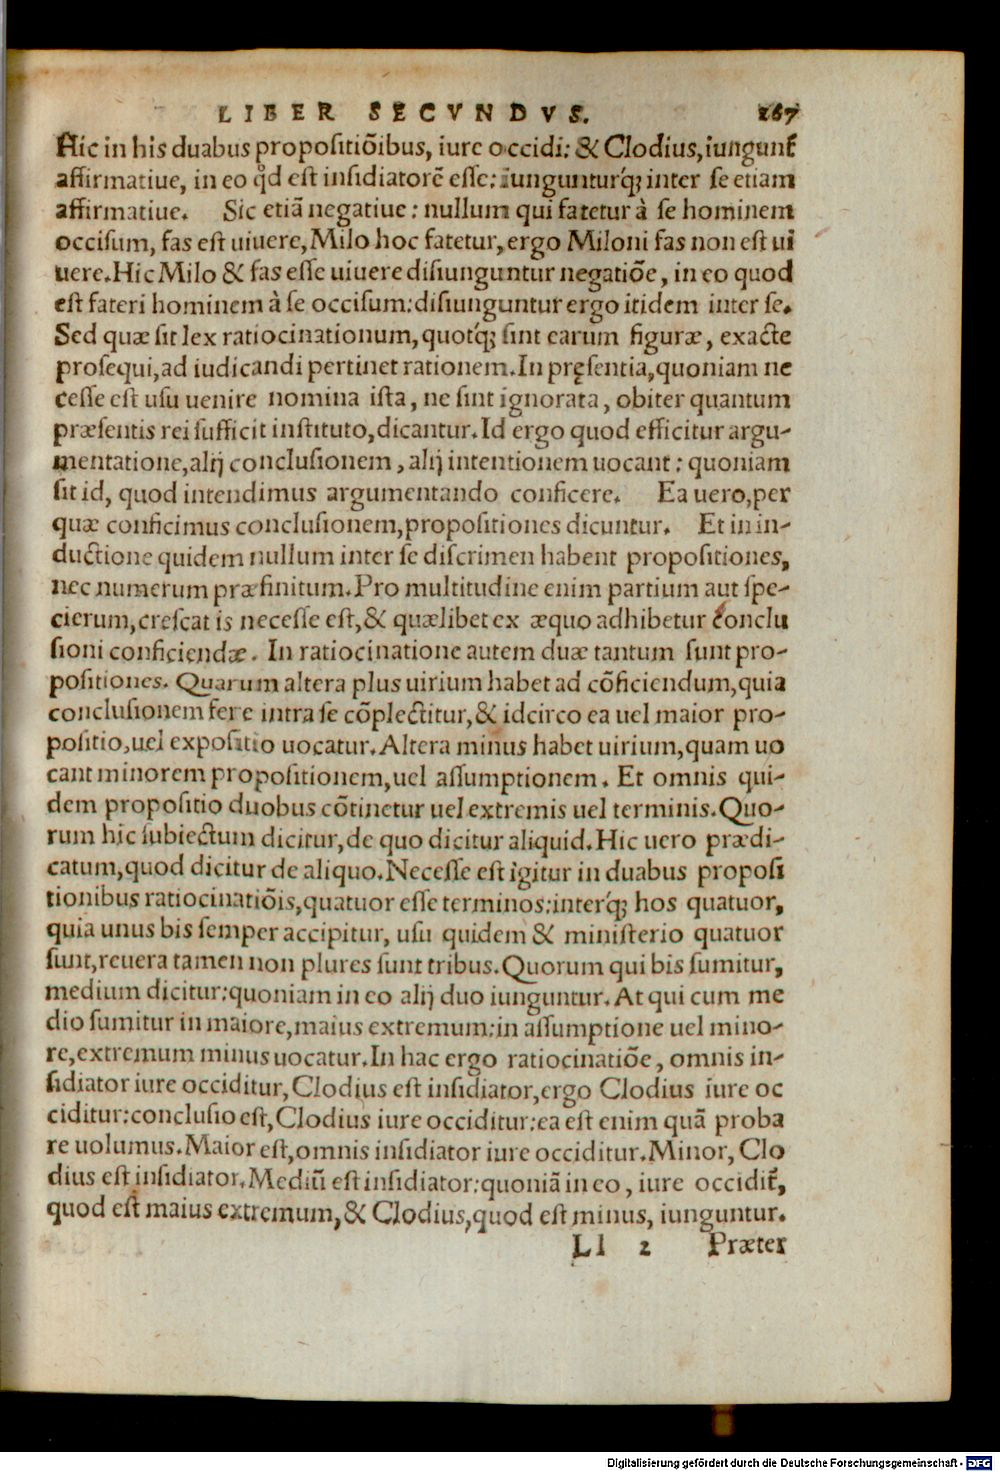 LIBER SECVNDVS. 267
Hic in his duabus propositiõibus, iure occidi: & Clodius, iungunt᷑
affirmatiue, in eo qđ est insidiatorẽ esse: iunguntur´q; inter se etiam
affirmatiue. Sic etiã negatiue: nullum qui fatetur à se hominem
occisum, fas est uiuere, Milo hoc fatetur, ergo Miloni fas non est ui
uere. Hic Milo & fas esse uiuere disiunguntur negatiõe, in eo quod
est fateri hominem à se occisum: disiunguntur ergo itidem inter se.
Sed quæ sit lex ratiocinationum, quot´q; sint earum figuræ, exacte
prosequi, ad iudicandi pertinet rationem. In pręsentia, quoniam ne
cesse est usu uenire nomina ista, ne sint ignorata, obiter quantum
præsentis rei sufficit instituto, dicantur. Id ergo quod efficitur argu-
mentatione, alij conclusionem, alij intentionem uocant: quoniam
sit id, quod intendimus argumentando conficere. Ea uero, per
quæ conficimus conclusionem, propositiones dicuntur. Et in in-
ductione quidem nullum inter se discrimen habent propositiones,
nec numerum præfinitum. Pro multitudine enim partium aut spe-
cierum, crescat is necesse est, & quælibet ex æquo adhibetur conclu
sioni conficiendæ. In ratiocinatione autem duæ tantum sunt pro-
positiones. Quarum altera plus uirium habet ad cõficiendum, quia
conclusionem fere intra se cõplectitur, & idcirco ea uel maior pro-
positio, uel expositio uocatur. Altera minus habet uirium, quam uo
cant minorem propositionem, uel assumptionem. Et omnis qui-
dem propositio duobus cõtinetur uel extremis uel terminis. Quo-
rum hic subiectum dicitur, de quo dicitur aliquid. Hic uero prædi-
catum, quod dicitur de aliquo. Necesse est igitur in duabus proposi
tionibus ratiocinatiõis, quatuor esse terminos: inter´q; hos quatuor,
quia unus bis semper accipitur, usu quidem & ministerio quatuor
sunt, reuera tamen non plures sunt tribus. Quorum qui bis sumitur,
medium dicitur: quoniam in eo alij duo iunguntur. At qui cum me
dio sumitur in maiore, maius extremum: in assumptione uel mino-
re, extremum minus uocatur. In hac ergo ratiocinatiõe, omnis in-
sidiator iure occiditur, Clodius est insidiator, ergo Clodius iure oc
ciditur: conclusio est, Clodius iure occiditur: ea est enim quã proba
re uolumus. Maior est, omnis insidiator iure occiditur. Minor, Clo
dius est insidiator. Mediũ est insidiator: quoniã in eo, iure occidit᷑,
quod est maius extremum, & Clodius, quod est minus, iunguntur.
Ll 2 Præter
Digitalisierung gefördert durch die Deutsche Forschungsgemeinschaft - DFG